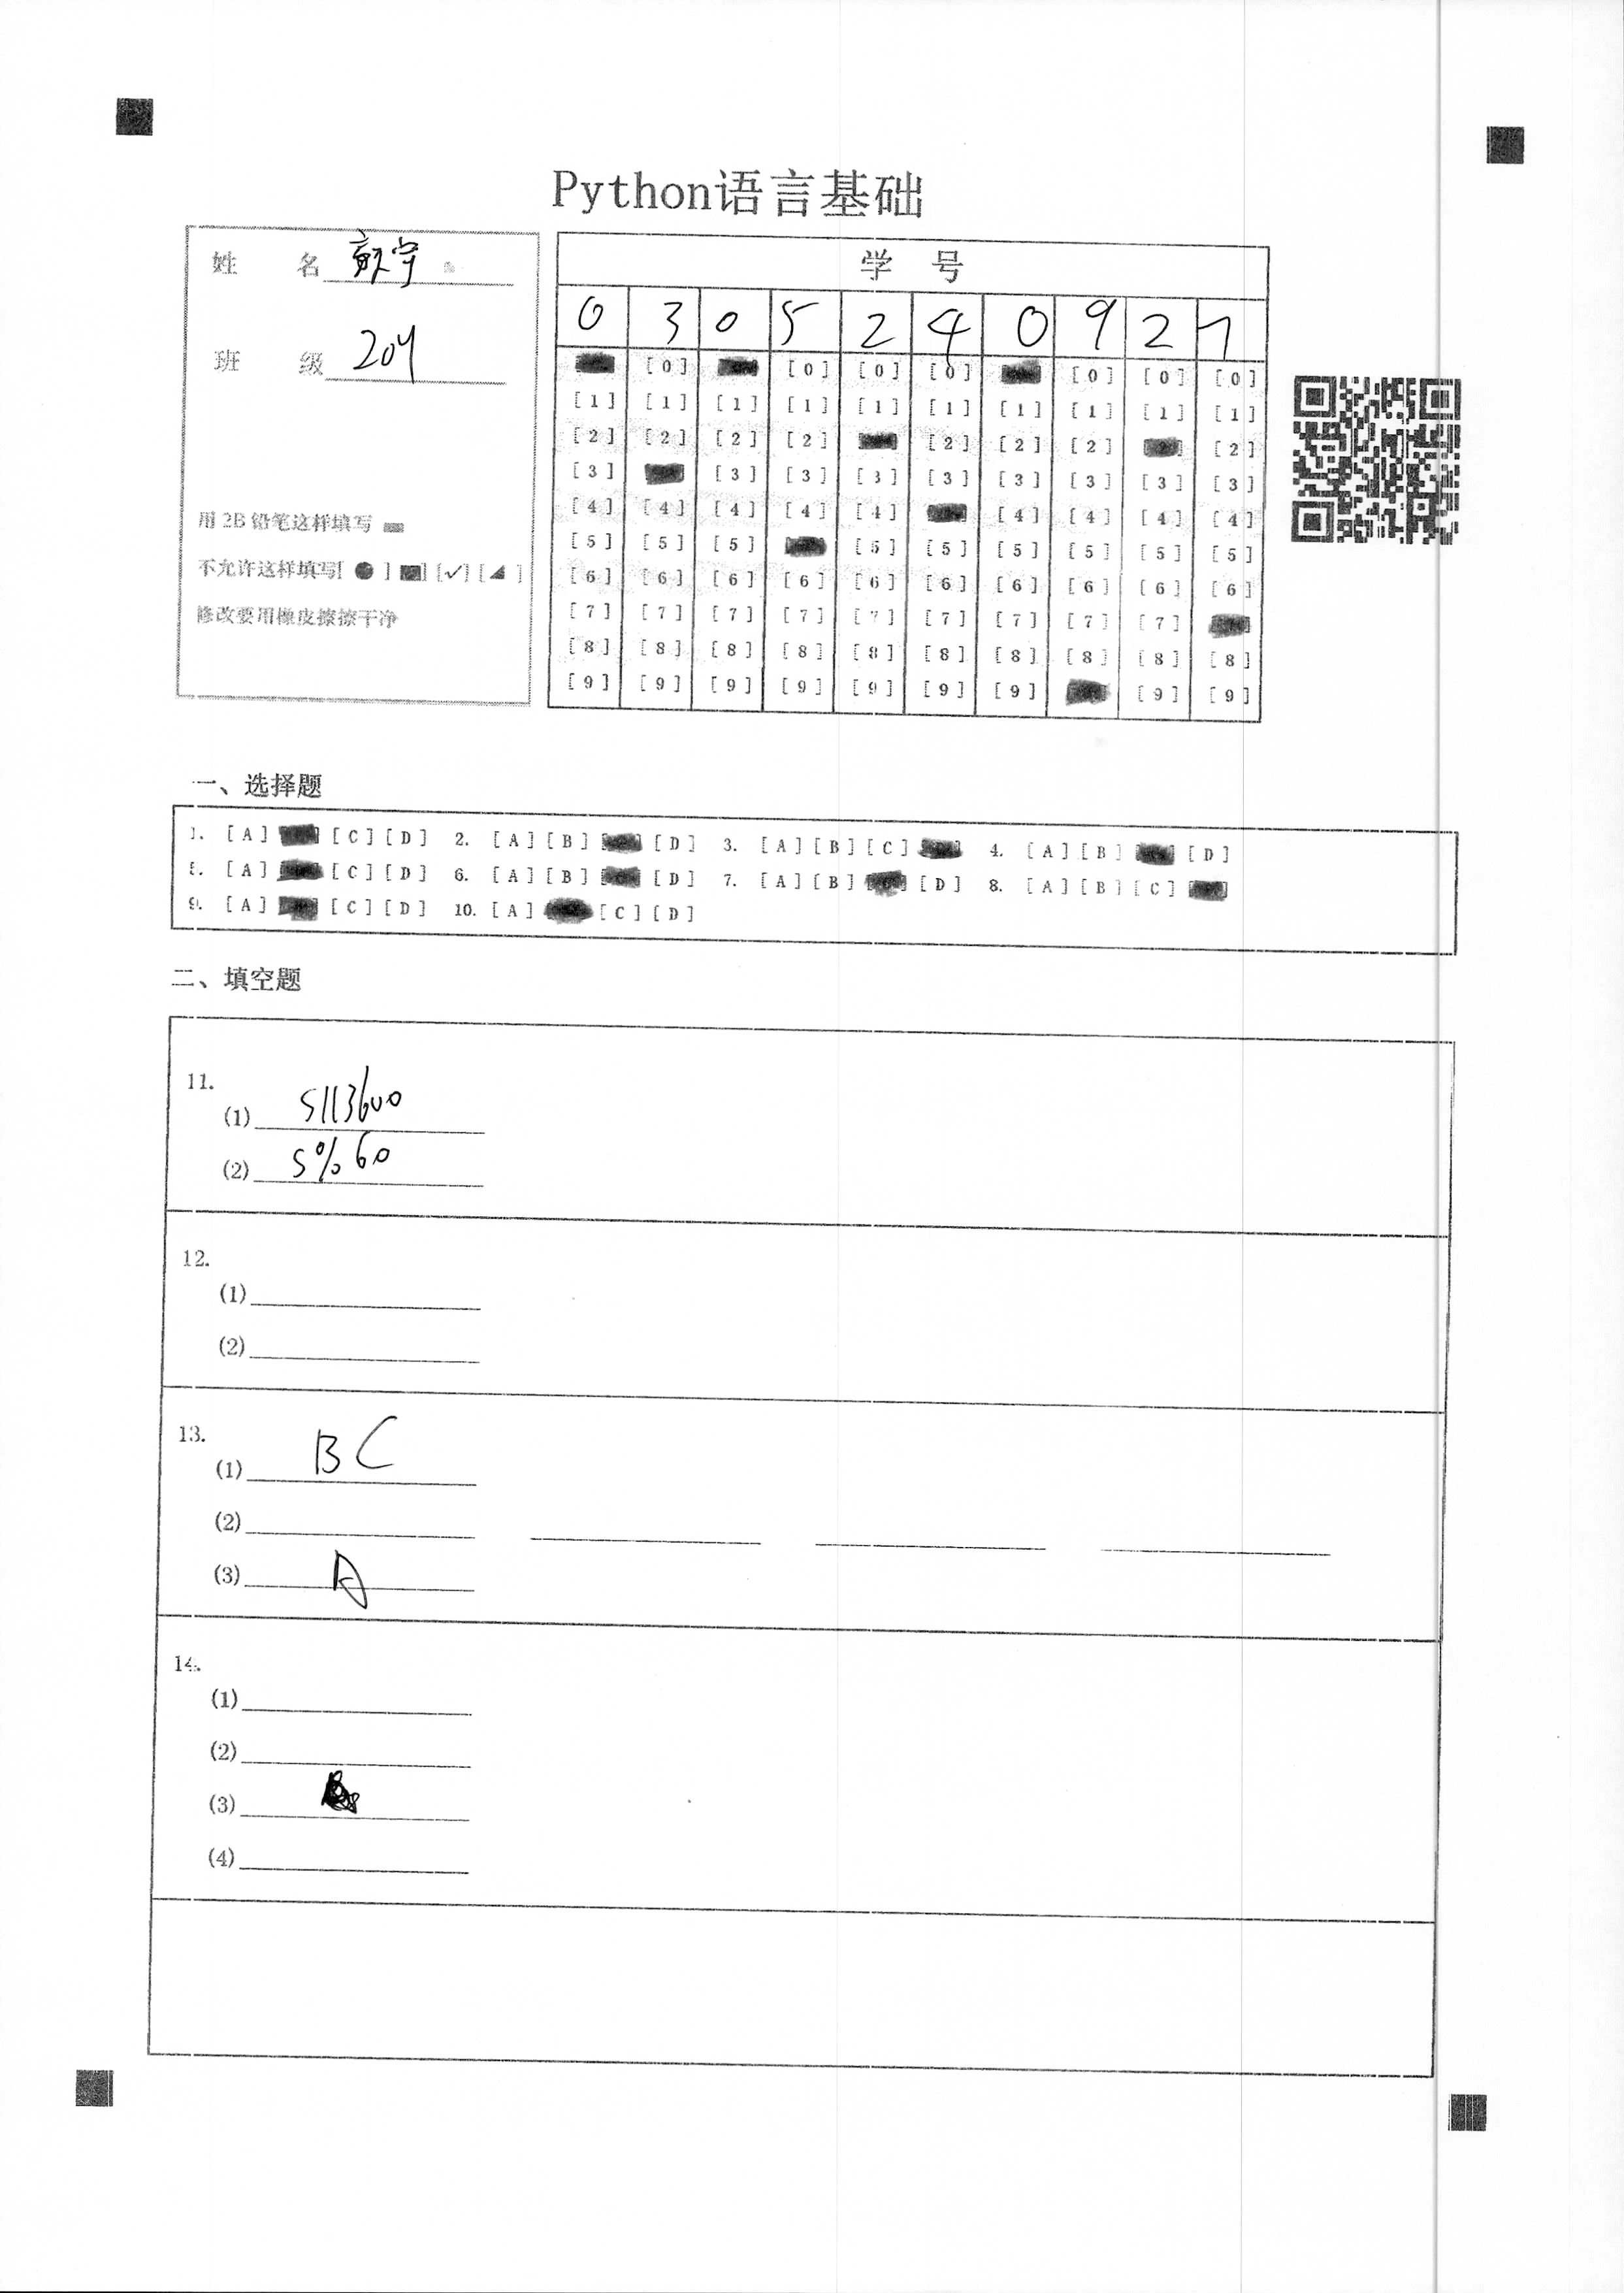 Python语言基础
姓 名
班 级 204
用 2B 铅笔这样填写
不允许这样填写[ ● ] ■] [✓] [◢ ]
修改要用橡皮擦擦干净
学 号
0 3 0 5 2 4 0 9 2 7
[0] [0] [0] [0] [0] [0] [0]
[1] [1] [1] [1] [1] [1] [1] [1] [1] [1]
[2] [2] [2] [2] [2] [2] [2] [2]
[3] [3] [3] [3] [3] [3] [3] [3] [3]
[4] [4] [4] [4] [4] [4] [4] [4] [4]
[5] [5] [5] [5] [5] [5] [5] [5] [5]
[6] [6] [6] [6] [6] [6] [6] [6] [6] [6]
[7] [7] [7] [7] [7] [7] [7] [7] [7]
[8] [8] [8] [8] [8] [8] [8] [8] [8] [8]
[9] [9] [9] [9] [9] [9] [9] [9] [9]
一、选择题
1. [A] [C] [D] 2. [A] [B] [D] 3. [A] [B] [C] 4. [A] [B] [D]
5. [A] [C] [D] 6. [A] [B] [D] 7. [A] [B] [D] 8. [A] [B] [C]
9. [A] [C] [D] 10. [A] [C] [D]
二、填空题
11.
(1) s//3600
(2) s%60
12.
(1)
(2)
13.
(1) BC
(2)
(3) A
14.
(1)
(2)
(3)
(4)